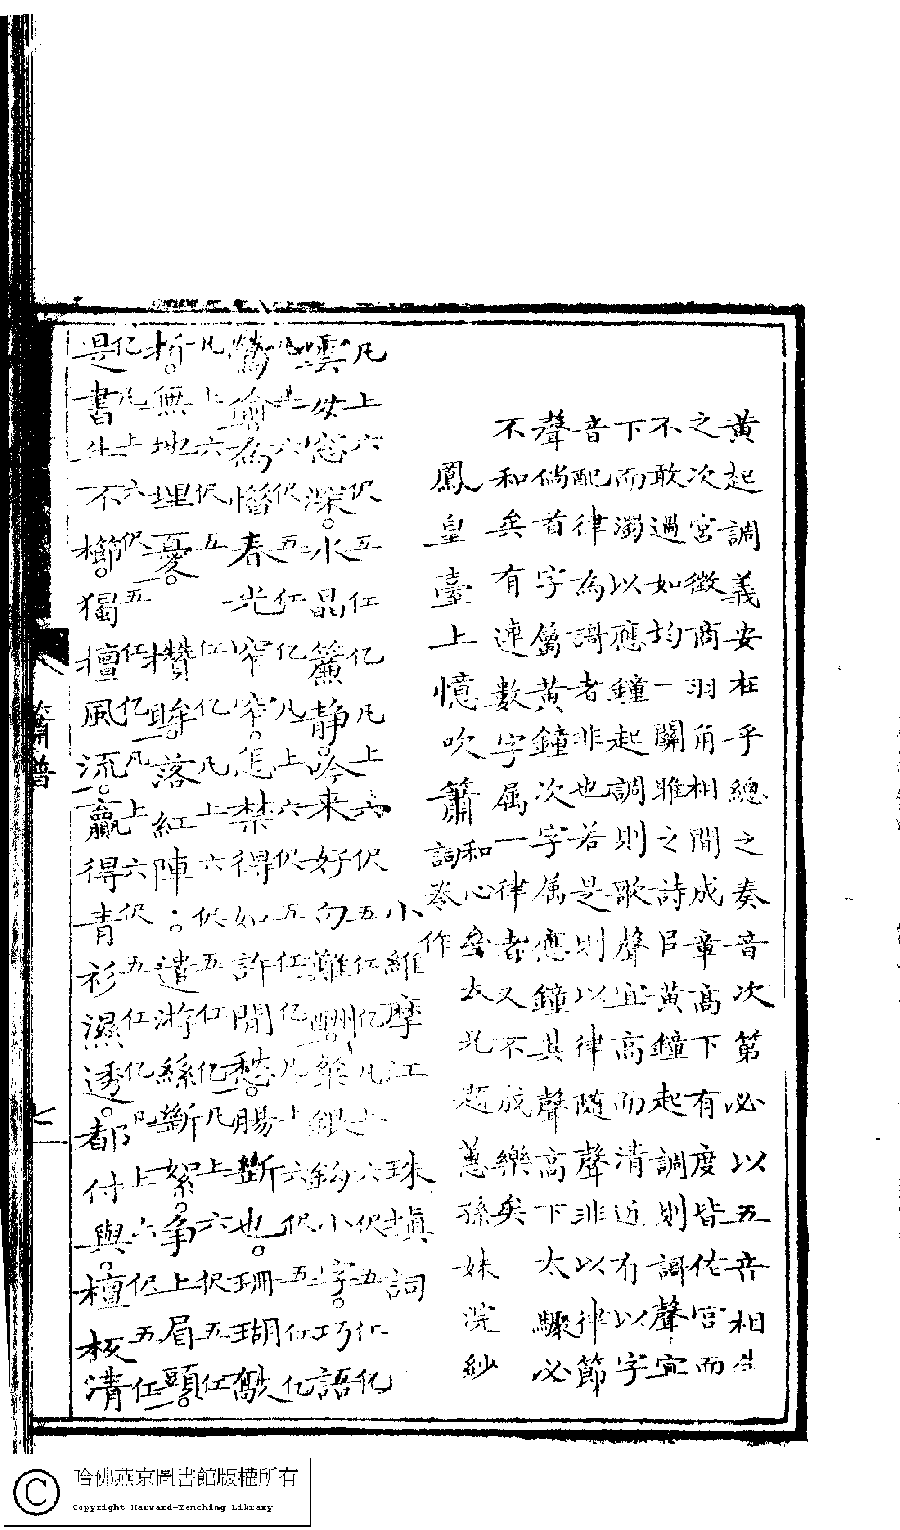 黃起調義安在乎總之奏音次第必以五音相生
之次宮徵商羽角相間成章高下有度皆佐宮而
不敢過如均一關雎之詩㠯黃鐘起調則調聲宜
下而濁以應鐘起調則歌聲宜高而清近有以字
音配律為調者非也若是則以律隨聲非以律節
聲倘首字屬黃鐘次字属應鐘其聲高下太驟必
不和矣有連數字屬一律者又不成樂矣
鳳皇臺上憶吹簫
和心太兄題蕙孫妹浣紗
詞卷作
小維摩江 珠塡詞
凡上六伬五仜亿凡上六伬五仜亿凡上六伬五仜亿
雲母窓深。水晶簾靜。吟来好句難酬。樂銀鈎小字。巧語
凡上六伬五仜亿凡上六伬五仜亿凡上六伬五仜亿
鶯喻為惜春光窄窄。怎禁得如許閒愁。腸斷也。珊瑚敲
凡上六伬五仜亿凡上六伬五仜亿凡上六伬五仜
折。無地埋憂。攢眸落紅陣。遣游絲斷絮。爭上眉頭。
亿凡上六伬五仜亿凡上六伬五仜亿凡上六伬五仜
是書生不櫛。獨擅風流。贏得青衫濕透。都付與。檀板清
簫譜
七
哈佛燕京圖書館版權所有
Copyright Harvard-Yenching Library